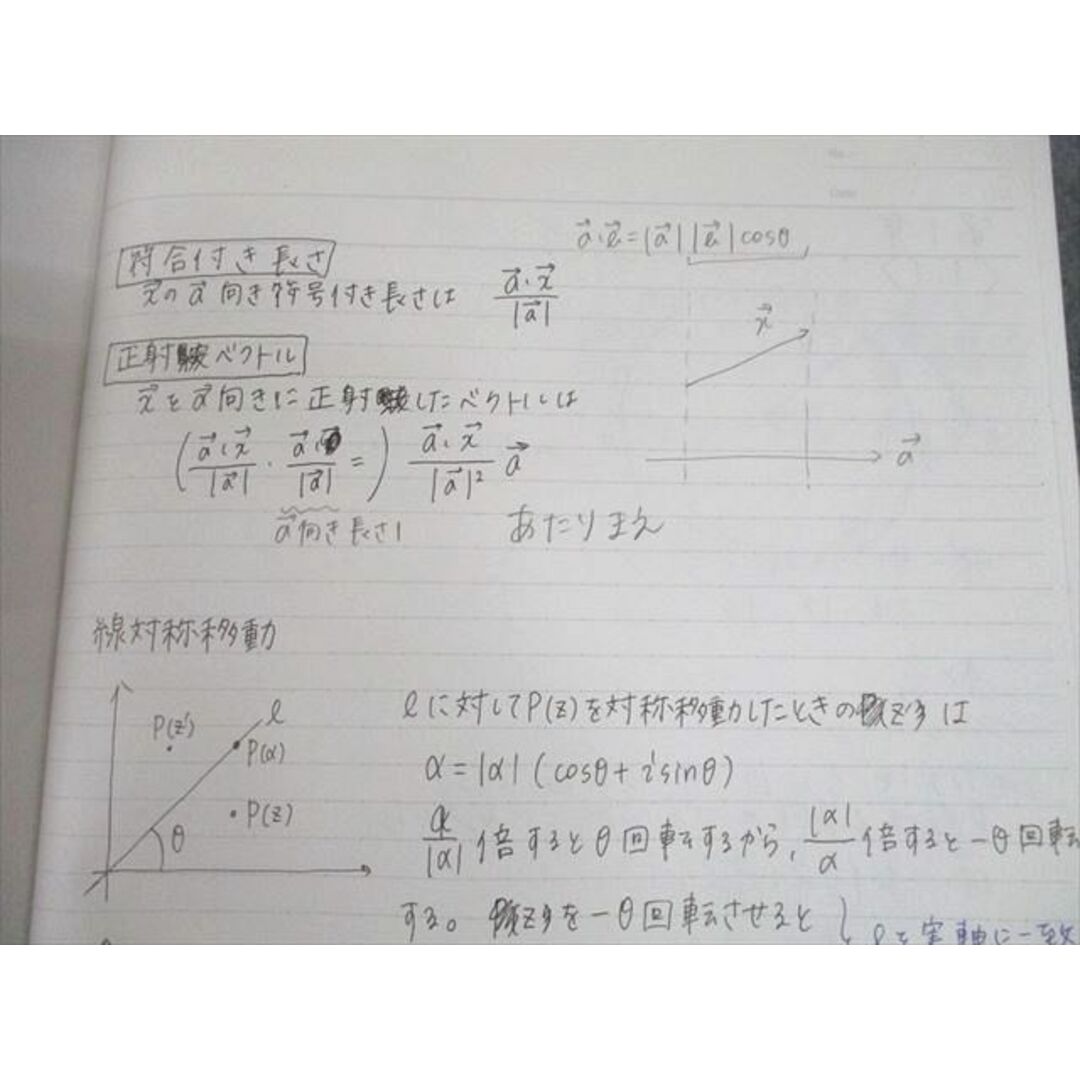 a⃗・x⃗=|a⃗||x⃗|cosθ
符合付き長さ
x⃗のa⃗向き符号付き長さは a⃗・x⃗/|a⃗|
x⃗
正射影ベクトル
x⃗をa⃗向きに正射影したベクトルは
(a⃗・x⃗/|a⃗| ・ a⃗/|a⃗| =) a⃗・x⃗/|a⃗|² a⃗
a⃗
a⃗向き長さ1 あたりまえ
線対称移動
P(z') l
P(α)
P(z)
θ
lに対してP(z)を対称移動したときの z'は
α=|α|(cosθ+isinθ)
α/|α|倍するとθ回転するから、|α|/α倍すると-θ回転
する。 を-θ回転させると
lを実軸に一致